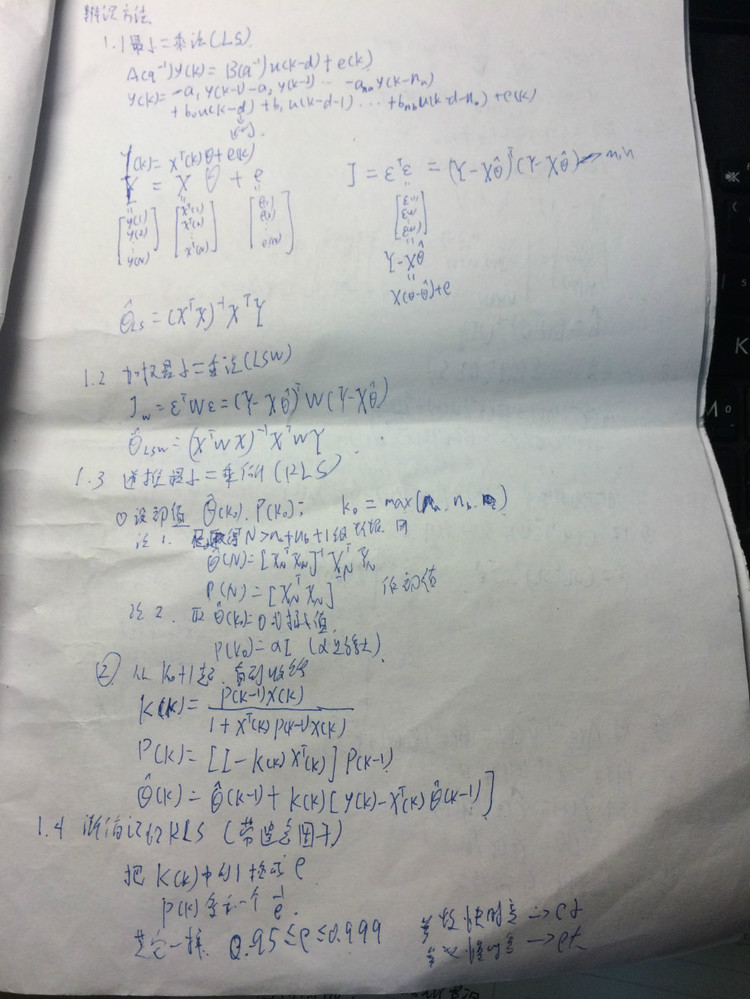 辨识方法
1.1 最小二乘法(LS)
A(q⁻¹)y(k) = B(q⁻¹)u(k-d) + e(k)
y(k) = -a₁y(k-1) - a₂y(k-2) ... -aₙₐy(k-nₐ)
+ b₀u(k-d) + b₁u(k-d-1) ... + bₙbu(k-d-n_b) + e(k)
y(k) = xᵀ(k)θ + e(k)
Y = X θ + e
J = εᵀε = (Y-Xθ̂)ᵀ(Y-Xθ̂) → min
[y(1) y(2) ⋮ y(N)] [xᵀ(1) xᵀ(2) ⋮ xᵀ(N)] [e(1) e(2) ⋮ e(N)]
[ε(1) ε(2) ⋮ ε(N)]
Y-Xθ̂
X(θ-θ̂)+e
θ̂_LS = (XᵀX)⁻¹XᵀY
1.2 加权最小二乘法(LSW)
J_w = εᵀWε = (Y-Xθ̂)ᵀW(Y-Xθ̂)
θ̂_LSW = (XᵀWX)⁻¹XᵀWY
1.3 递推最小二乘 (RLS)
① 设初值 θ̂(k₀), P(k₀); k₀ = max(nₐ, n_b)
法1. 取得N>nₐ+n_b+1组数据 用
θ̂(N) = [X_NᵀX_N]⁻¹X_NᵀY_N
P(N) = [X_NᵀX_N]⁻¹ 作初值
法2. 取 θ̂(k₀)=0
P(k₀) = αI (α足够大)
② 从 k₀+1起, 直到收敛
K(k) = P(k-1)X(k) / 1 + Xᵀ(k)P(k-1)X(k)
P(k) = [I - K(k)Xᵀ(k)]P(k-1)
θ̂(k) = θ̂(k-1) + K(k)[y(k) - Xᵀ(k)θ̂(k-1)]
1.4 渐消记忆RLS (带遗忘因子)
把 K(k)中的1换成 ρ
P(k)乘一个 1/ρ
其它一样. 0.95≤ρ≤0.999
参数快时变 → ρ小
参数慢时变 → ρ大